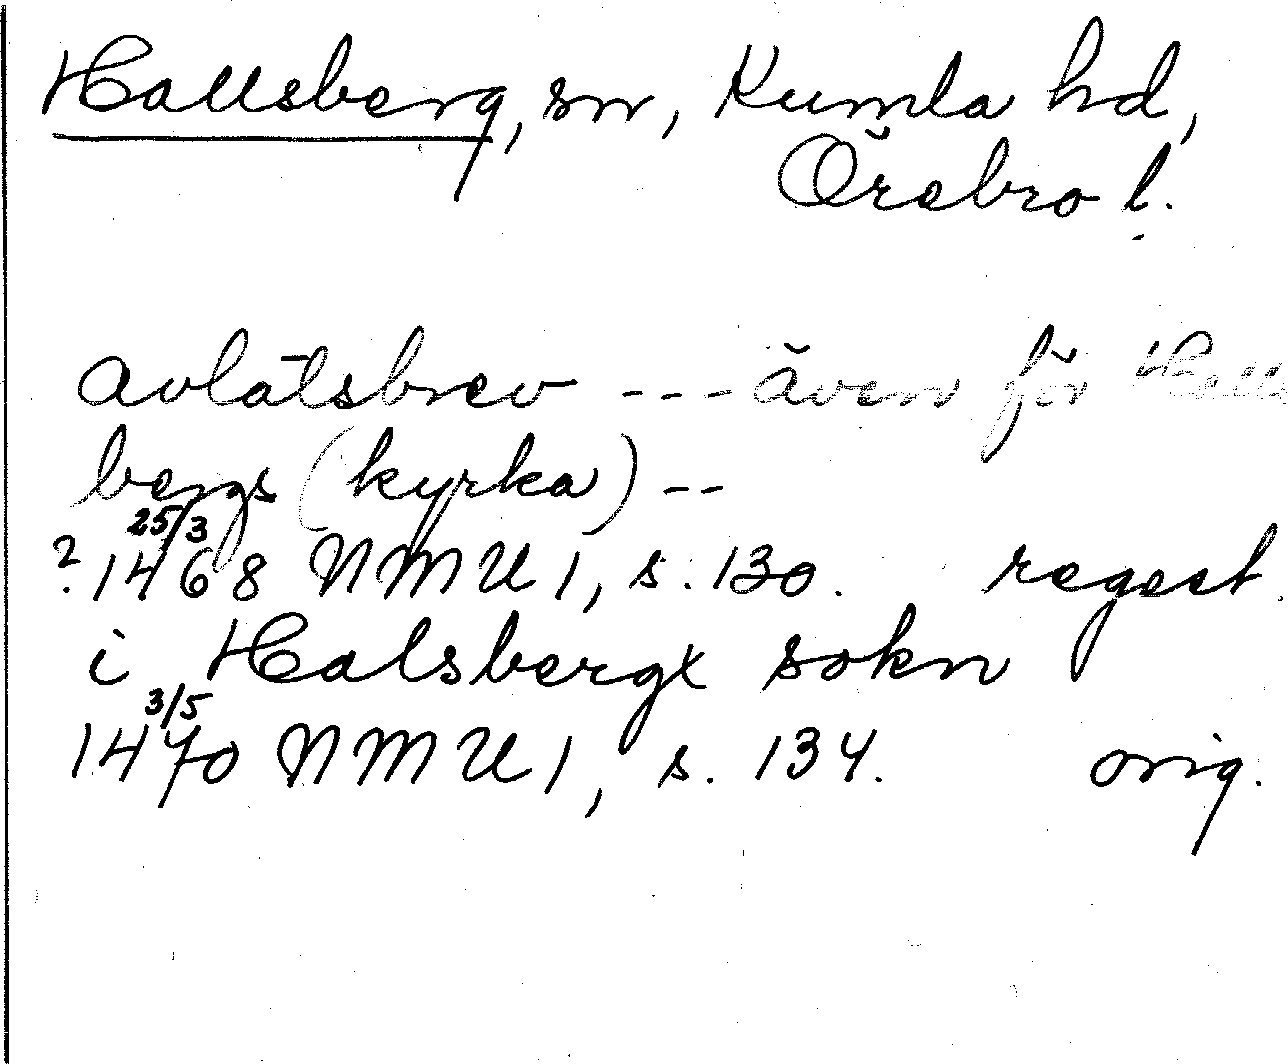 Hallsberg, sn, Kumla hd,
Örebro l.
Avlatsbrev --- även för Halls
bergs (kyrka) --
25/3
? 1468 NMU 1, s. 130. regest.
i Halsbergx sokn
3/5
1470 NMU 1, s. 134. orig.